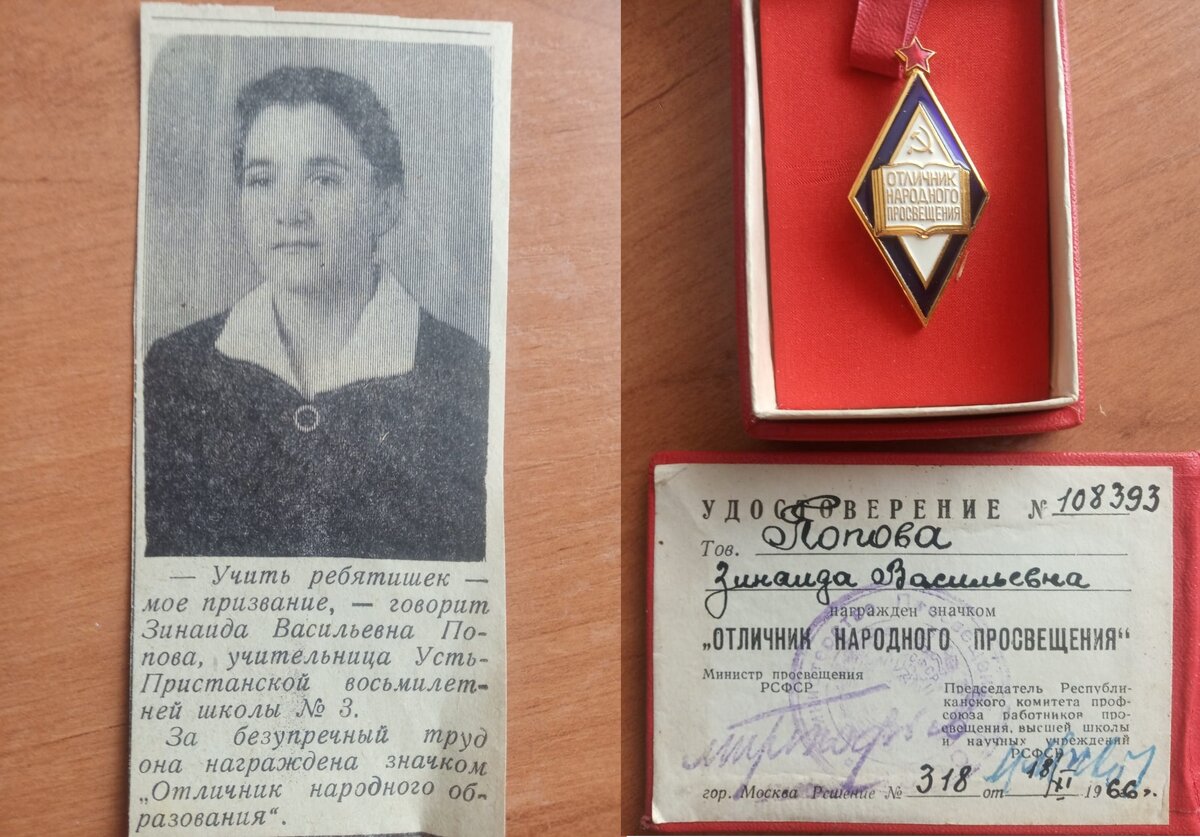 — Учить ребятишек —
мое призвание, — говорит
Зинаида Васильевна По-
пова, учительница Усть-
Пристанской восьмилет-
ней школы № 3.
За безупречный труд
она награждена значком
„Отличник народного об-
разования“.
ОТЛИЧНИК
НАРОДНОГО
ПРОСВЕЩЕНИЯ
УДОСТОВЕРЕНИЕ № 108393
Тов. Попова
Зинаида Васильевна
награжден значком
„ОТЛИЧНИК НАРОДНОГО ПРОСВЕЩЕНИЯ“
Министр просвещения
РСФСР
Председатель Республи-
канского комитета проф-
союза работников про-
свещения, высшей школы
и научных учреждений
РСФСР
гор. Москва Решение № 318 от 18/XI 1966 г.